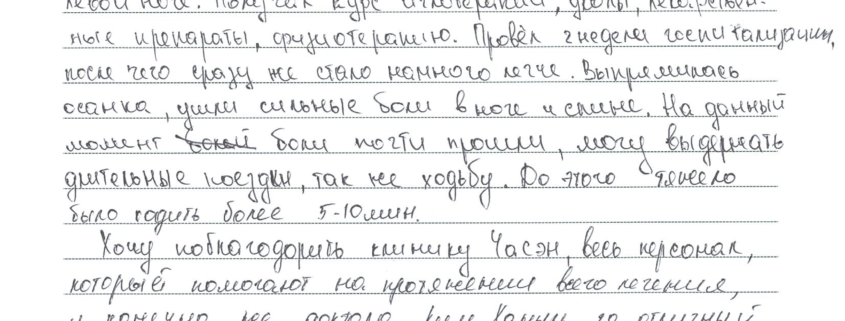 левой ноги. Получал курс иглотерапии, уколы, лекарствен-
ные препараты, физиотерапию. Провёл 2 недели госпитализации,
после чего сразу же стало намного легче. Выпрямилась
осанка, ушли сильные боли в ноге и спине. На данный
момент боли почти прошли, могу выдержать
длительные поездки, так же ходьбу. До этого тяжело
было ходить более 5-10 мин.
Хочу поблагодорить клинику Часэн, весь персонал,
который помогают на протяжении всего лечения,
и конечно же доктора за отличный